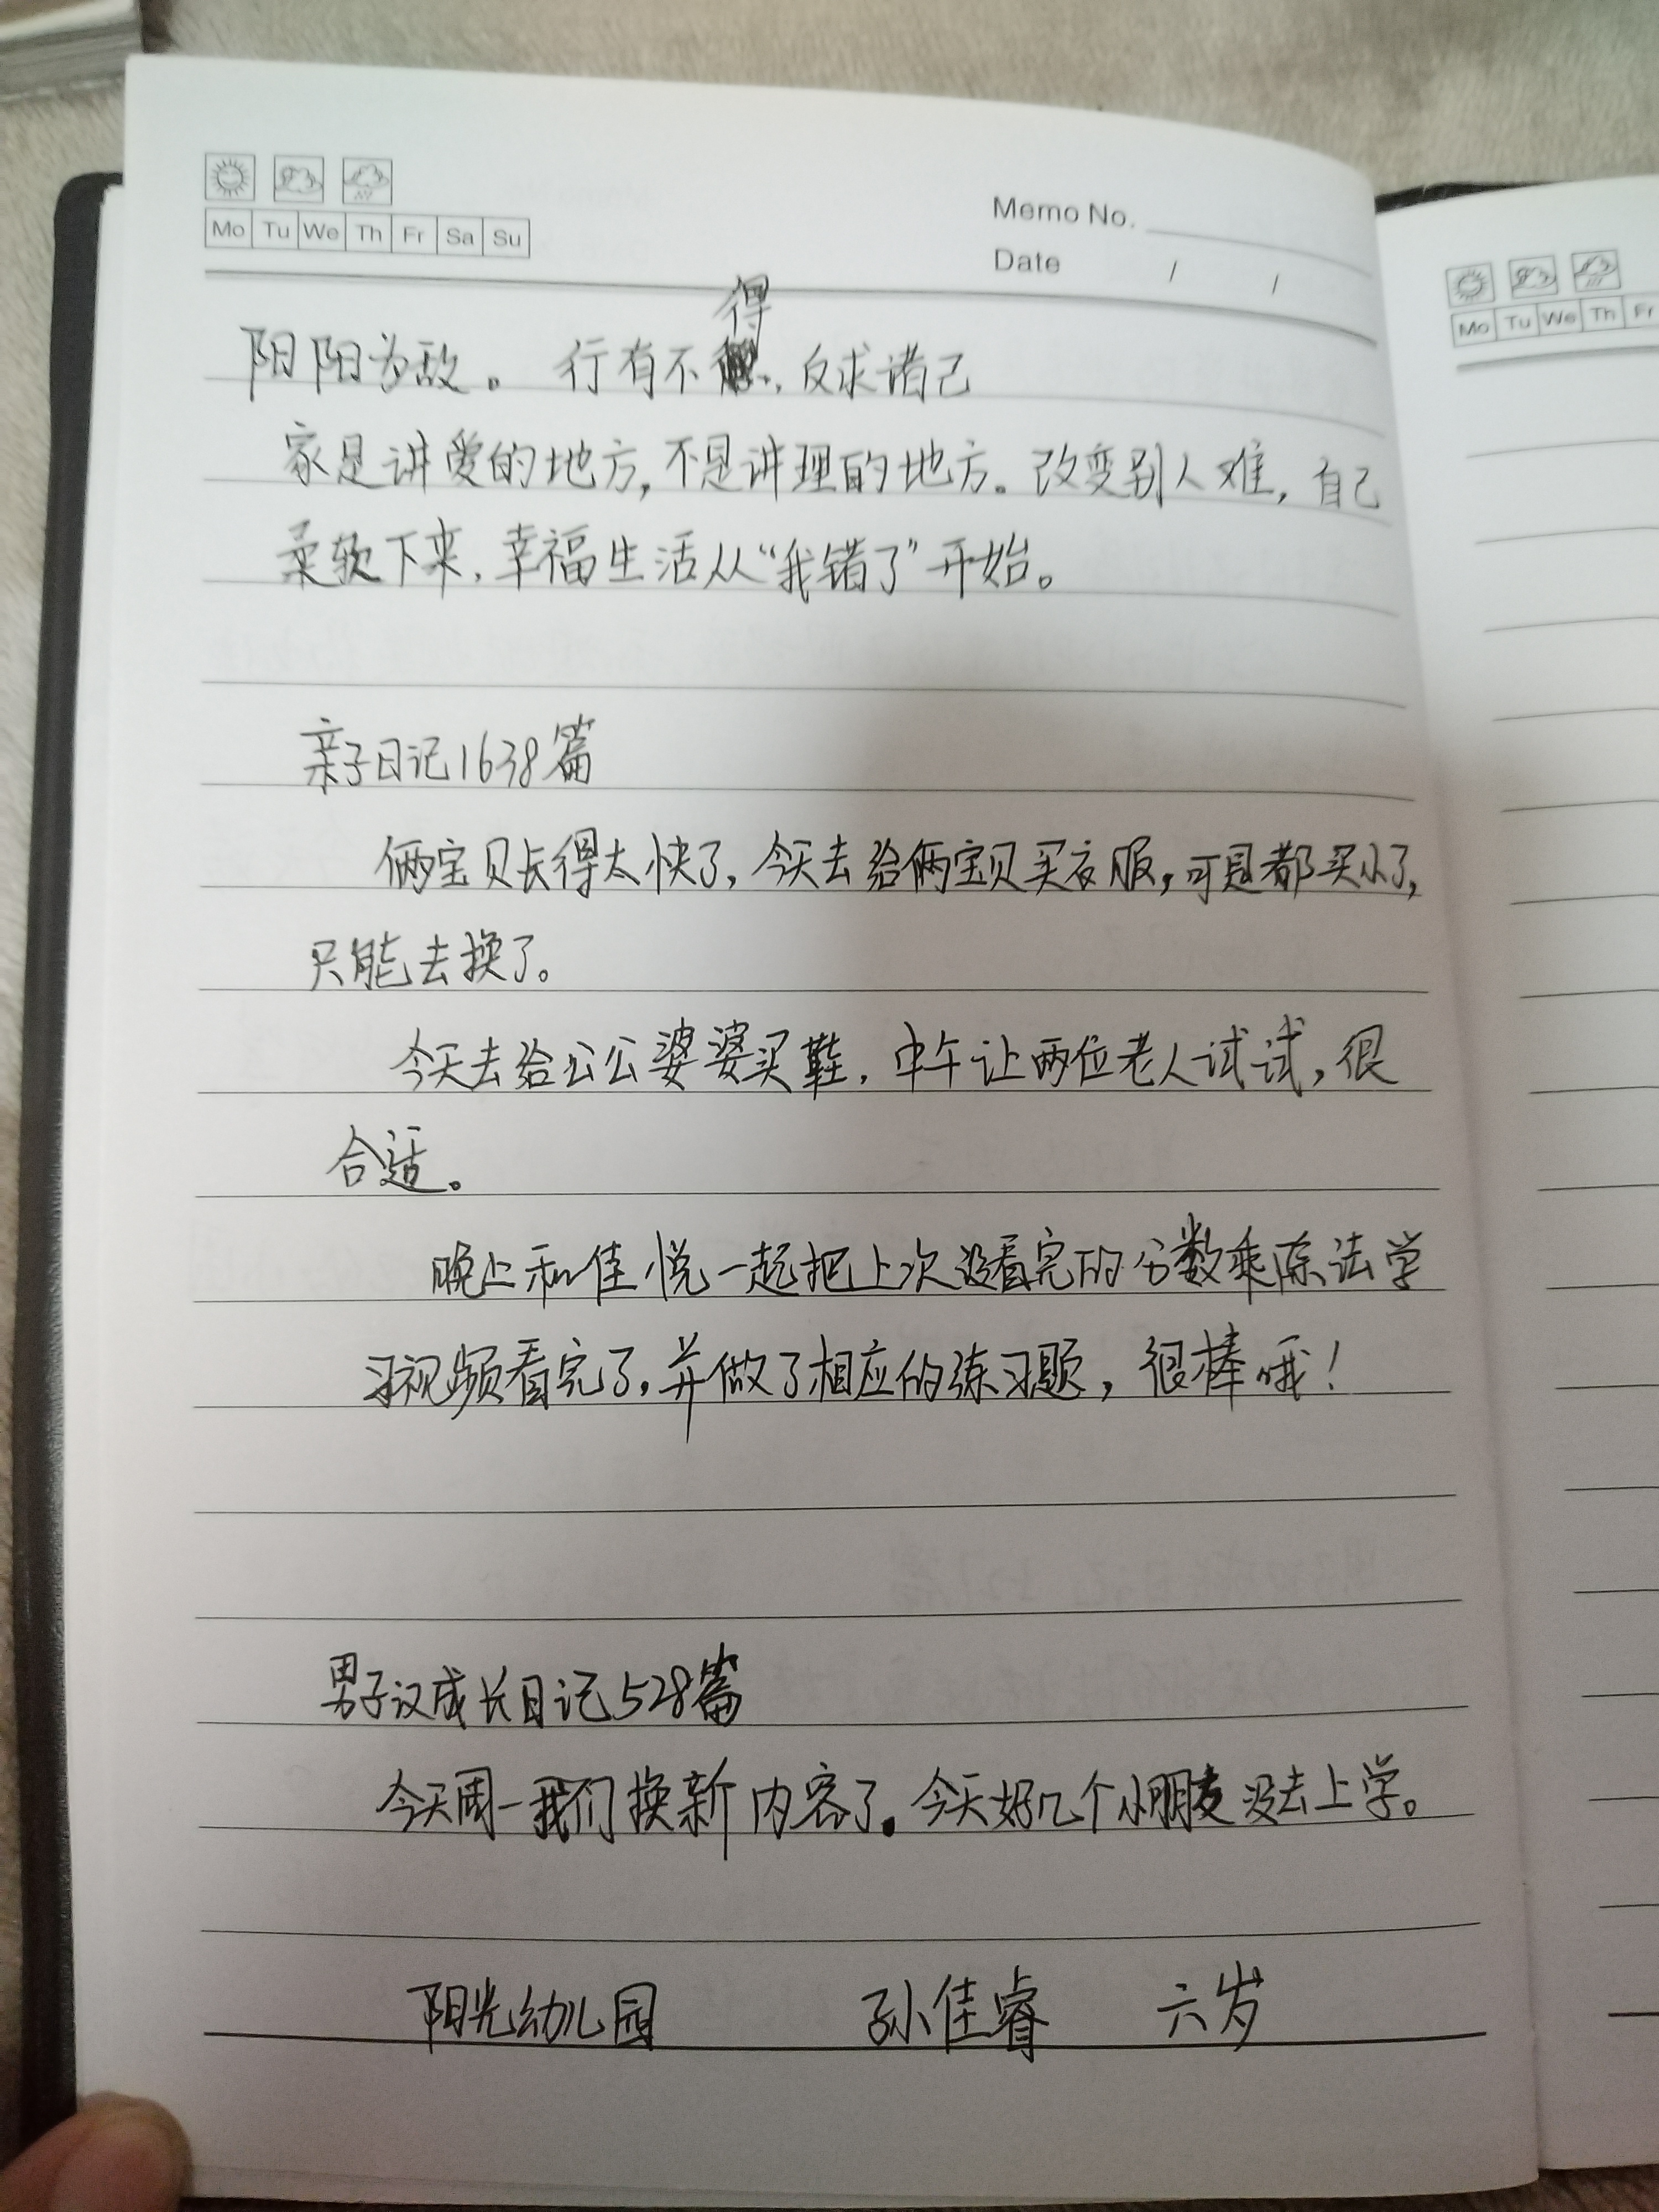 Mo Tu We Th Fr Sa Su
Memo No.
Date / /
Mo Tu We Th Fr
得
阳阳为敌。 行有不，反求诸己
家是讲爱的地方，不是讲理的地方。改变别人难，自己
柔软下来，幸福生活从“我错了”开始。
亲子日记1638篇
俩宝贝长得太快了，今天去给俩宝贝买衣服，可是都买小了，
只能去换了。
今天去给公公婆婆买鞋，中午让两位老人试试，很
合适。
晚上和佳悦一起把上次没看完的分数乘除法学
习视频看完了，并做了相应的练习题，很棒哦！
男子汉成长日记528篇
今天周一我们换新内容了。今天好几个小朋友没去上学。
阳光幼儿园 孙佳睿 六岁